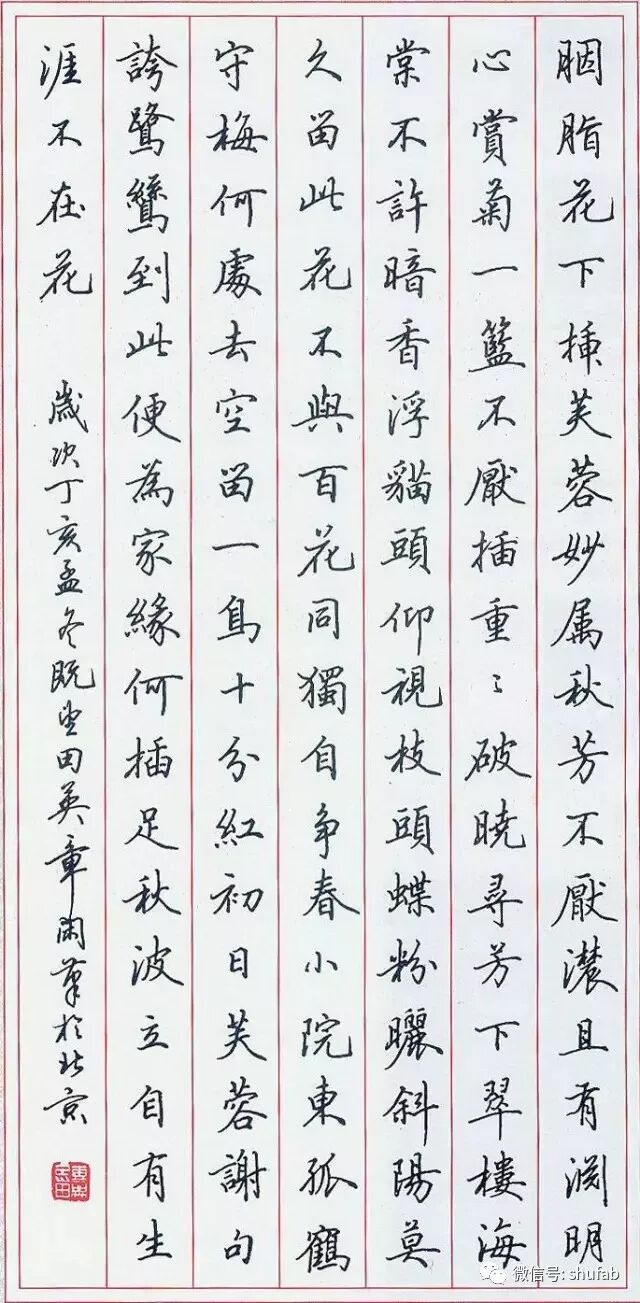 胭脂花下插芙蓉妙属秋芳不厭濃且有渊明
心賞菊一籃不厭插重〻破曉尋芳下翠樓海
棠不許暗香浮貓頭仰視枝頭蝶粉曬斜陽莫
久留此花不與百花同獨自争春小院東孤鶴
守梅何處去空留一鳥十分紅初日芙蓉謝句
誇鷺鷥到此便為家緣何插足秋波立自有生
涯不在花
歲次丁亥孟冬既望田英章閑筆於北京
微信号: shufab